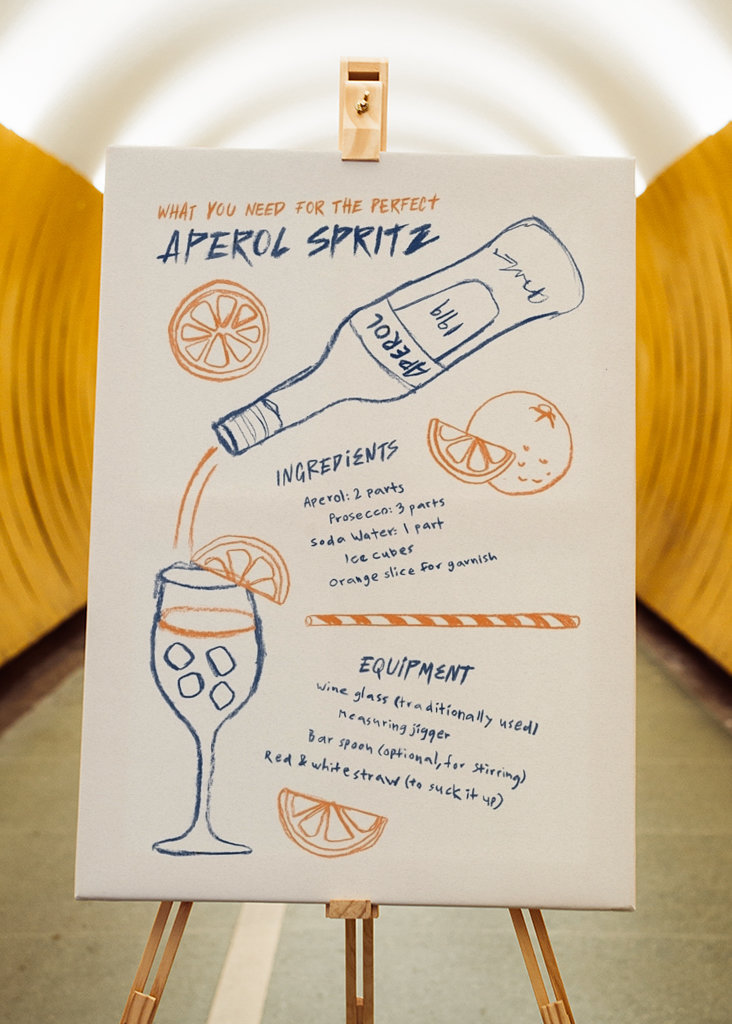 WHAT YOU NEED FOR THE PERFECT
APEROL SPRITZ
APEROL
1919
INGREDIENTS
Aperol: 2 parts
Prosecco: 3 parts
Soda Water: 1 part
Ice cubes
Orange slice for garnish
EQUIPMENT
Wine glass (traditionally used)
Measuring jigger
Bar spoon (optional, for stirring)
Red & white straw (to suck it up)